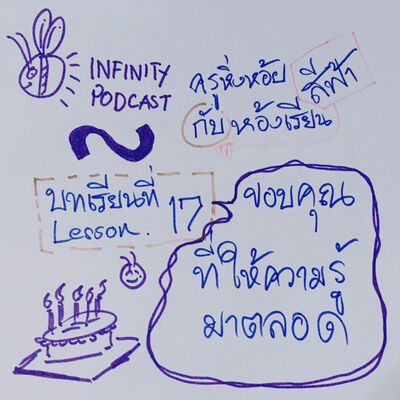 INFINITY
PODCAST
ครูหิ่งห้อย
สีฟ้า
กับห้องเรียน
บทเรียนที่
Lesson. 17
ขอบคุณ
ที่ให้ความรู้
มาตลอด